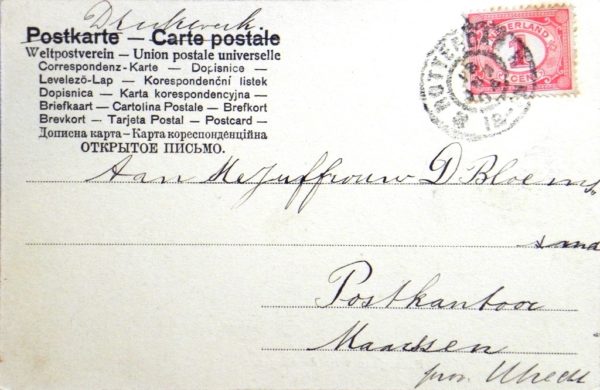 Drukwerk.
Postkarte — Carte postale
Weltpostverein — Union postale universelle
Correspondenz-Karte — Dopisnice —
Levelező-Lap — Korespondenční listek
Dopisnica — Karta korespondencyjna —
Briefkaart — Cartolina Postale — Brefkort
Brevkort — Tarjeta Postal — Postcard —
Дописна карта — Карта кореспонденційна
ОТКРЫТОЕ ПИСЬМО.
NEDERLAND
1
CENT
ROTTERDAM
Aan Mejuffrouw D. Bloems
Postkantoor
Maarssen
prov. Utrecht